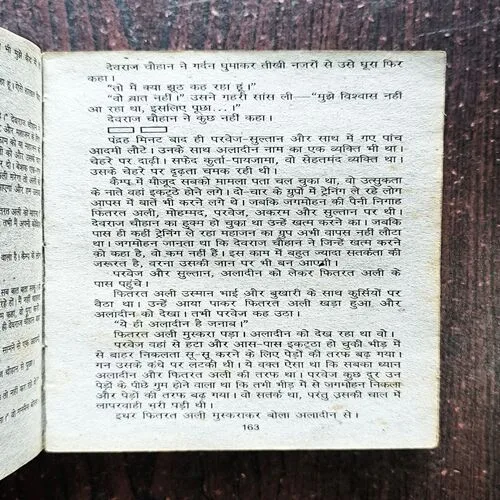 देवराज चौहान ने गर्दन घुमाकर तीखी नजरों से उसे घूरा फिर
कहा।
"तो मैं क्या झूठ कह रहा हूं।"
"वो बात नहीं।" उसने गहरी सांस ली—"मुझे विश्वास नहीं
आ रहा था, इसलिए पूछा...।"
देवराज चौहान ने कुछ नहीं कहा।
पंद्रह मिनट बाद ही परवेज-सुल्तान और साथ में गए पांच
आदमी लौटे। उनके साथ अलादीन नाम का एक व्यक्ति भी था।
चेहरे पर दाढ़ी। सफेद कुर्ता-पायजामा, वो सेहतमंद व्यक्ति था।
उसके चेहरे पर दृढ़ता चमक रही थी।
कैम्प में मौजूद सबको मामला पता चल चुका था, वो उत्सुकता
के नाते वहां इकट्ठे होने लगे। दो-चार के ग्रुपों में ट्रेनिंग ले रहे लोग
आपस में बातें भी करने लगे थे। जबकि जगमोहन की पैनी निगाह
फितरत अली, मोहम्मद, परवेज, अकरम और सुल्तान पर थी।
देवराज चौहान का हुक्म हो चुका था उन्हें खत्म करने का। जबकि
पास ही कहीं ट्रेनिंग ले रहा महाजन का ग्रुप अभी वापस नहीं लौटा
था। जगमोहन जानता था कि देवराज चौहान ने जिन्हें खत्म करने
को कहा है, वो कम नहीं हैं। इस काम में बहुत ज्यादा सतर्कता की
जरूरत है, वरना उसकी जान पर भी बन आएगी।
परवेज और सुल्तान, अलादीन को लेकर फितरत अली के
पास पहुंचे।
फितरत अली उस्मान भाई और बुखारी के साथ कुर्सियों पर
बैठा था। उन्हें आया पाकर फितरत अली खड़ा हुआ और
अलादीन को देखा। तभी परवेज कह उठा।
"ये ही अलादीन है जनाब।"
फितरत अली मुस्करा पड़ा। अलादीन को देख रहा था वो।
परवेज वहां से हटा और आस-पास इकट्ठा हो चुकी भीड़ में
से बाहर निकलता सू-सू करने के लिए पेड़ों की तरफ बढ़ गया।
गन उसके कंधे पर लटकी थी। ये वक्त ऐसा था कि सबका ध्यान
अलादीन और फितरत अली की तरफ था। परवेज कुछ दूर उन
पेड़ों के पीछे गुम होने वाला था कि तभी भीड़ में से जगमोहन निकला
और पेड़ों की तरफ बढ़ गया। वो सतर्क था, परंतु उसकी चाल में
लापरवाही भरी पड़ी थी।
इधर फितरत अली मुस्कराकर बोला अलादीन से।
163